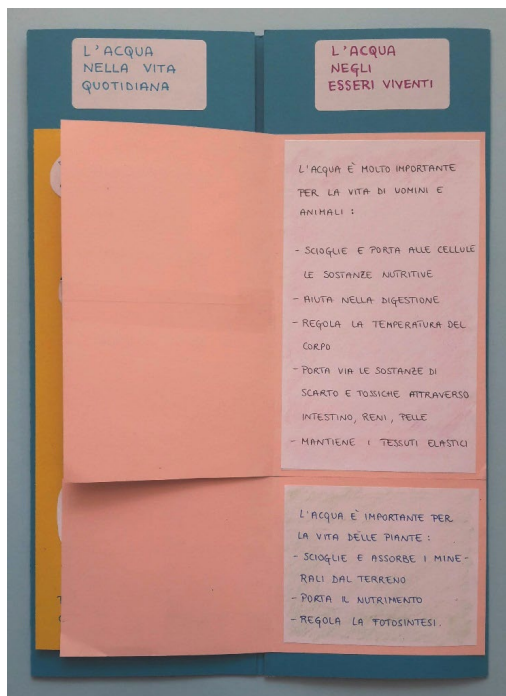 L'ACQUA
NELLA VITA
QUOTIDIANA
L'ACQUA
NEGLI
ESSERI VIVENTI
L'ACQUA È MOLTO IMPORTANTE
PER LA VITA DI UOMINI E
ANIMALI :
- SCIOGLIE E PORTA ALLE CELLULE
LE SOSTANZE NUTRITIVE
- AIUTA NELLA DIGESTIONE
- REGOLA LA TEMPERATURA DEL
CORPO
- PORTA VIA LE SOSTANZE DI
SCARTO E TOSSICHE ATTRAVERSO
INTESTINO, RENI, PELLE
- MANTIENE I TESSUTI ELASTICI
L'ACQUA È IMPORTANTE PER
LA VITA DELLE PIANTE :
- SCIOGLIE E ASSORBE I MINE-
RALI DAL TERRENO
- PORTA IL NUTRIMENTO
- REGOLA LA FOTOSINTESI.